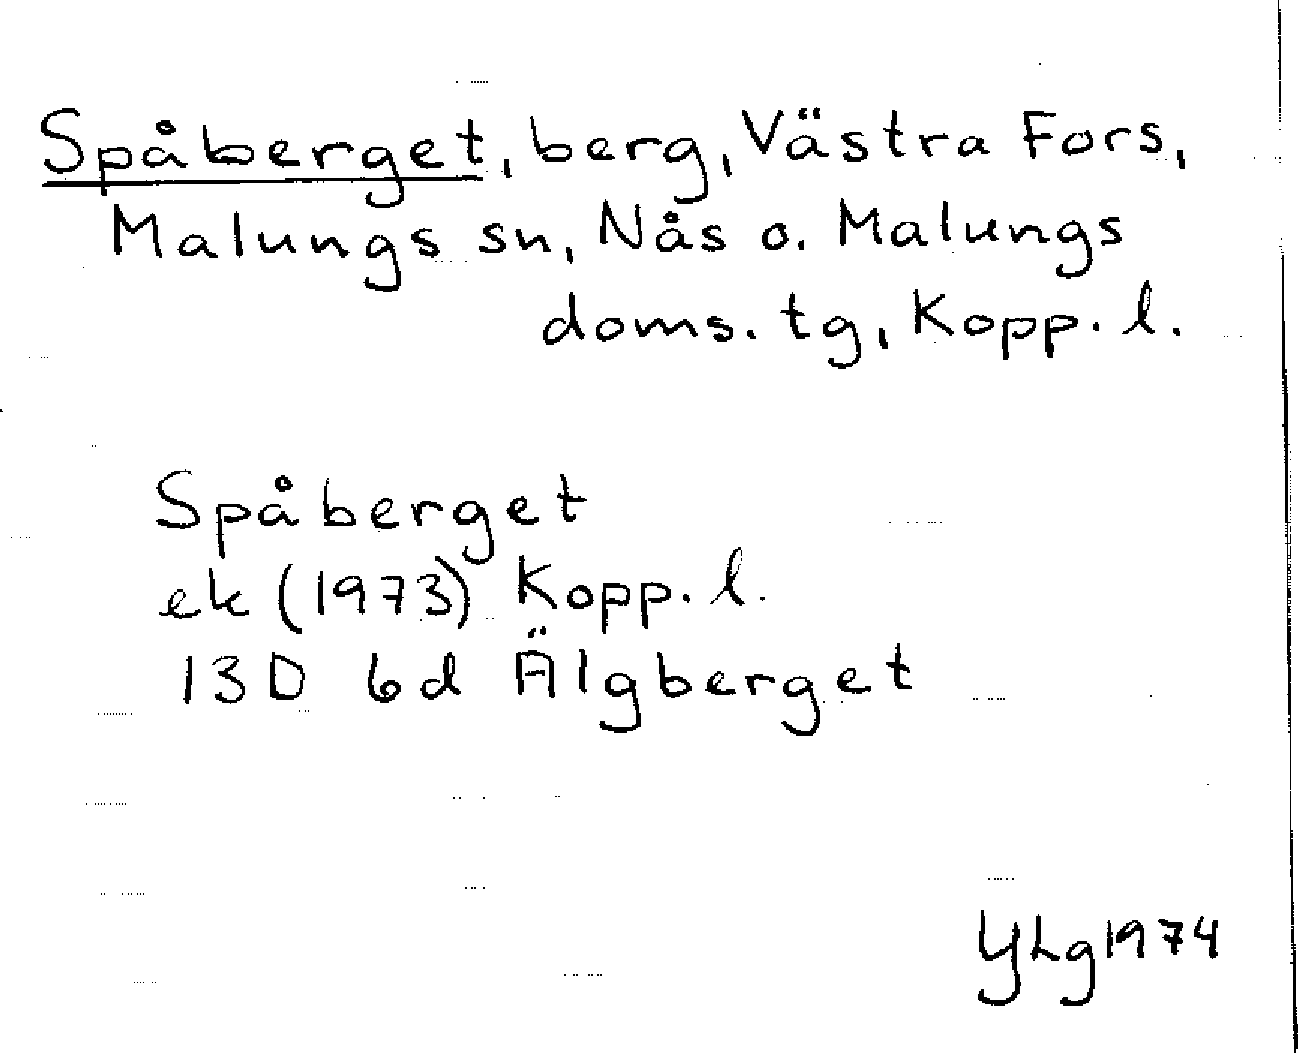 Spåberget, berg, Västra Fors,
Malungs sn, Nås o. Malungs
doms. tg, Kopp. l.
Spåberget
ek (1973) Kopp. l.
13D 6d Älgberget
YLg 1974